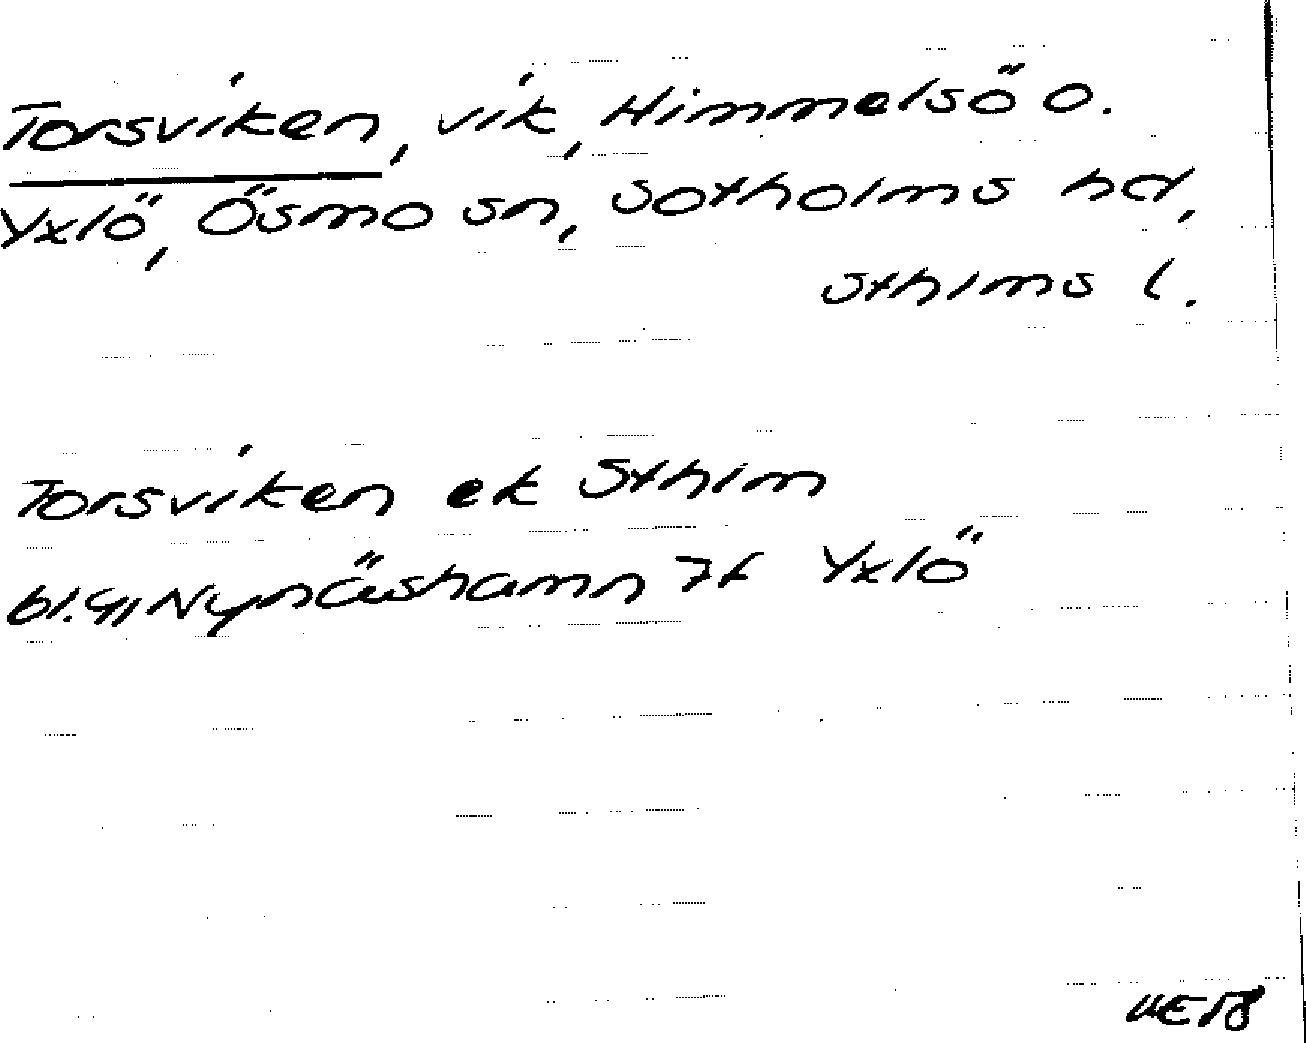 Torsviken, vik, Himmelsö o.
Yxlö, Ösmo sn, Sotholms hd,
Sthlms l.
Torsviken ek Sthlm
bl. 91 Nynäshamn 7f Yxlö